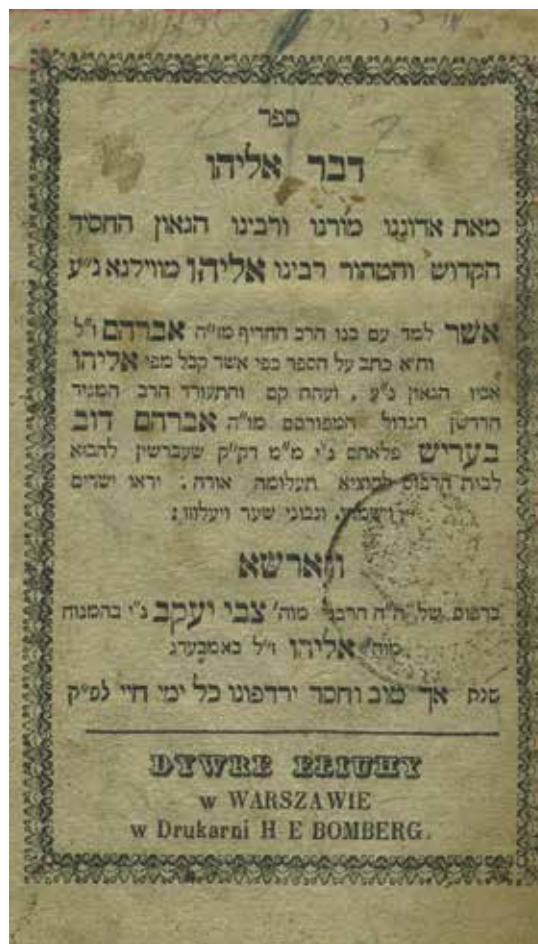 ספר
דבר אליהו
מאת אדוננו מורנו ורבינו הגאון החסיד
הקדוש והטהור רבינו אליהו מווילנא נ״ע
אשר למד עם בנו הרב החריף מו״ה אברהם ז״ל
והיא כתב על הספר כפי אשר קבל מפי אליהו
אביו הגאון נ״ע , ועתה קם והתעורר הרב המגיד
הדרשן הגדול המפורסם מו״ה אברהם דוב
בעריש פלאהם נ״י מ״מ דק״ק שעברשין להביא
לבית הדפוס להוציא תעלומה אורה : יראו ישרים
וישמחו, ונבוני שער ויעלוזו :
ווארשא
בדפוס של ה״ה הרבני מוה׳ צבי יעקב נ״י בהמנוח
מוה׳ אליהו ז״ל באמבערג
שנת אך טוב וחסד ירדפוני כל ימי חיי לפ״ק
DYWRE ELIUHY
w WARSZAWIE
w Drukarni H E BOMBERG.